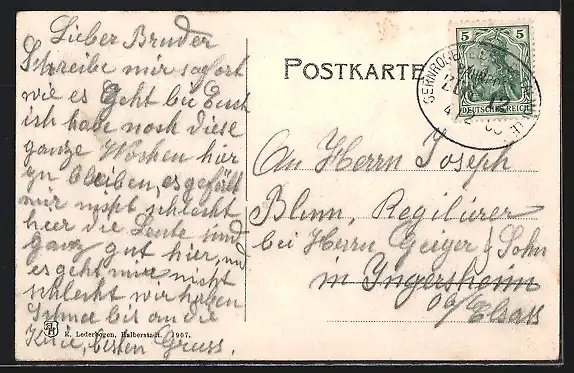 Lieber Bruder
Schreibe mir sofort
wie es Geht bei Euch
ich habe noch diese
ganze Wochen hier
zu bleiben, es gefält
mir nicht schlecht
hier die Leute sind
ganz gut hier, und
es geht mir nicht
schlecht wir haben
Schnee bis an die
Knie, besten Gruss.
K. Lederbogen, Halberstadt. 1907.
POSTKARTE
5 5
DEUTSCHES REICH
GERNRODE
ZUG
An Herrn Joseph
Blum, Regilierer
bei Herrn Geiger & Sohn
in Ingersheim
Ob/Elsass